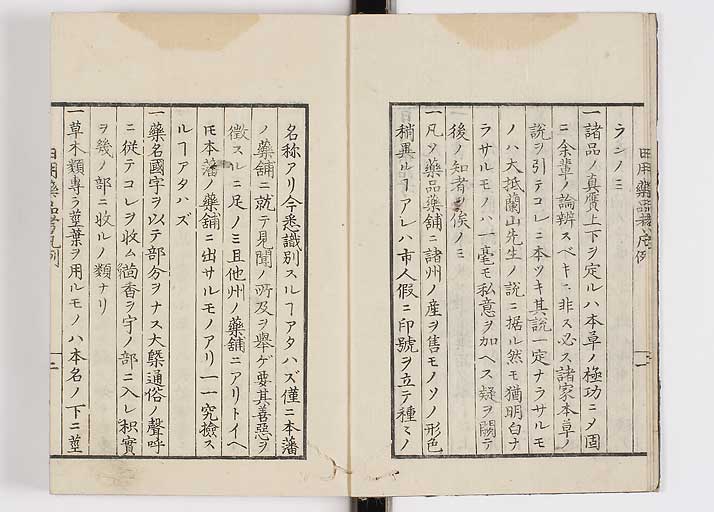 ランノミ
一諸品ノ真贋上下ヲ定ルハ本草ノ極功ニメ固
ニ余輩ノ論辨スベキニ非ス必ス諸家本草ノ
説ヲ引テコレニ本ツキ其説一定ナラサルモ
ノハ大抵蘭山先生ノ説ニ据ル然モ猶明白ナ
ラサルモノハ一毫モ私意ヲ加ヘス疑ヲ闕テ
後ノ知者ヲ俟ノミ
一凡ソ藥品藥舗ニ諸州ノ産ヲ售モノソノ形色
稍異ルヿアレハ市人假ニ印號ヲ立テ種〻ノ
名称アリ今悉識別スルヿアタハズ僅ニ本藩
ノ藥舗ニ就テ見聞ノ所及ヲ舉ゲ要其善惡ヲ
徴スルニ足ノミ且他州ノ藥舗ニアリトイヘ
𪜈本藩ノ藥舗ニ出サルモノアリ一一究撿ス
ルヿアタハズ
一藥名國字ヲ以テ部分ヲナス大槩通俗ノ聲呼
ニ従テコレヲ收ム茴香ヲ宇ノ部ニ入レ枳實
ヲ幾ノ部ニ收ルノ類ナリ
一草木類專ラ莖葉ヲ用ルモノハ本名ノ下ニ莖
日用藥品考凡例